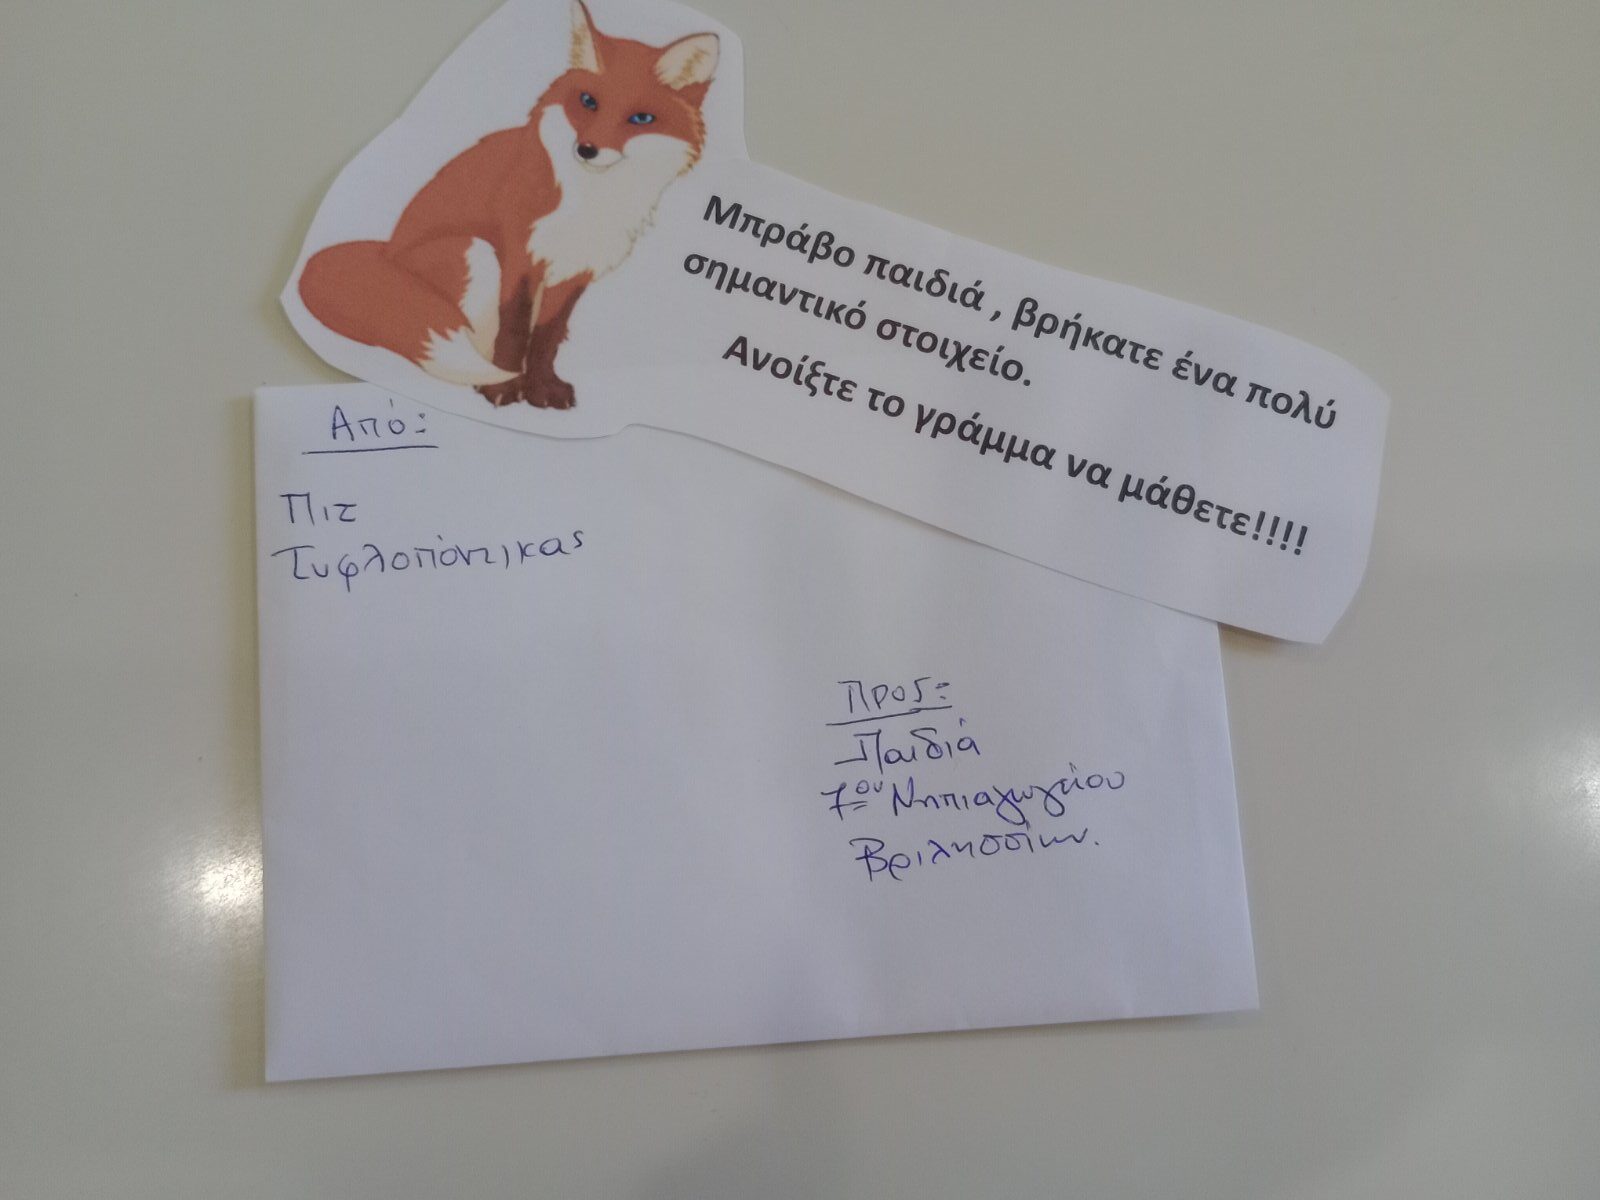 Μπράβο παιδιά , βρήκατε ένα πολύ
σημαντικό στοιχείο.
Ανοίξτε το γράμμα να μάθετε!!!!
Από:
Πιτ
Τυφλοπόντικας
Προς:
Παιδιά
7ου Νηπιαγωγείου
Βριλησσίων.